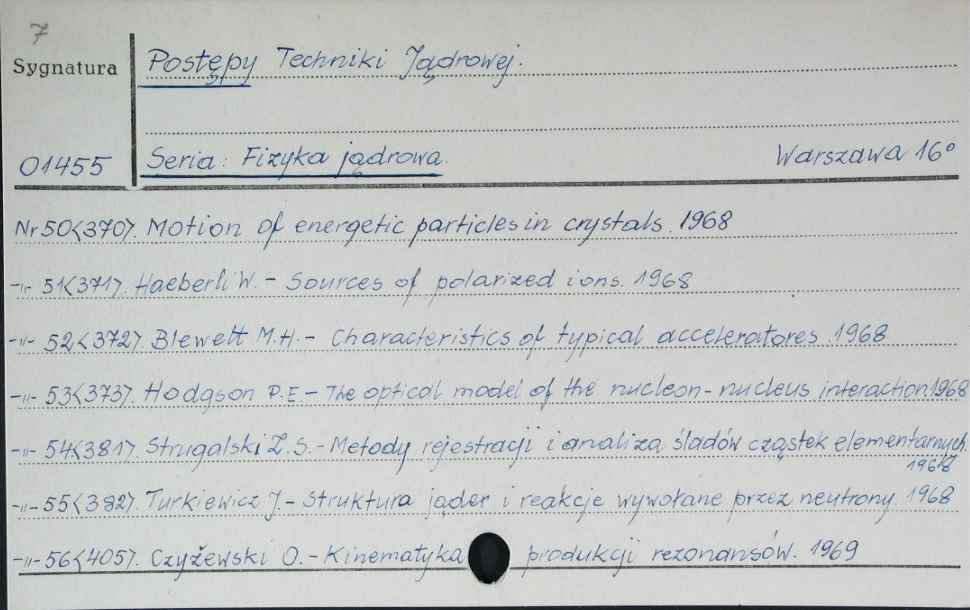 7
Sygnatura
Postępy Techniki Jądrowej.
01455
Seria: Fizyka jądrowa. Warszawa 16°
Nr 50<370>. Motion of energetic particles in crystals. 1968
-"- 51<371>. Haeberli W. - Sources of polarized ions. 1968
-"- 52<372>. Blewett M.H. - Characteristics of typical acceleratores. 1968
-"- 53<373>. Hodgson P.E - The optical model of the nucleon-nucleus interaction. 1968
-"- 54<381>. Strugalski Z.S. - Metody rejestracji i analiza śladów cząstek elementarnych.
1968
-"- 55<382>. Turkiewicz J. - Struktura jąder i reakcje wywołane przez neutrony. 1968
-"- 56<405>. Czyżewski O. - Kinematyka produkcji rezonansów. 1969